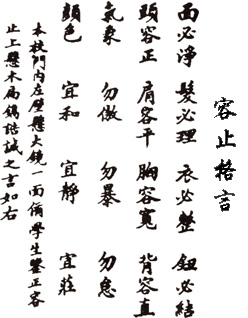 容止格言
面必淨 髮必理 衣必整 鈕必結
頭容正 肩容平 胸容寬 背容直
氣象 勿傲 勿暴 勿怠
顏色 宜和 宜靜 宜莊
本校門內左壁懸大鏡一面俻學生鑒正容
止上懸木扁鐫誥誡之言如右